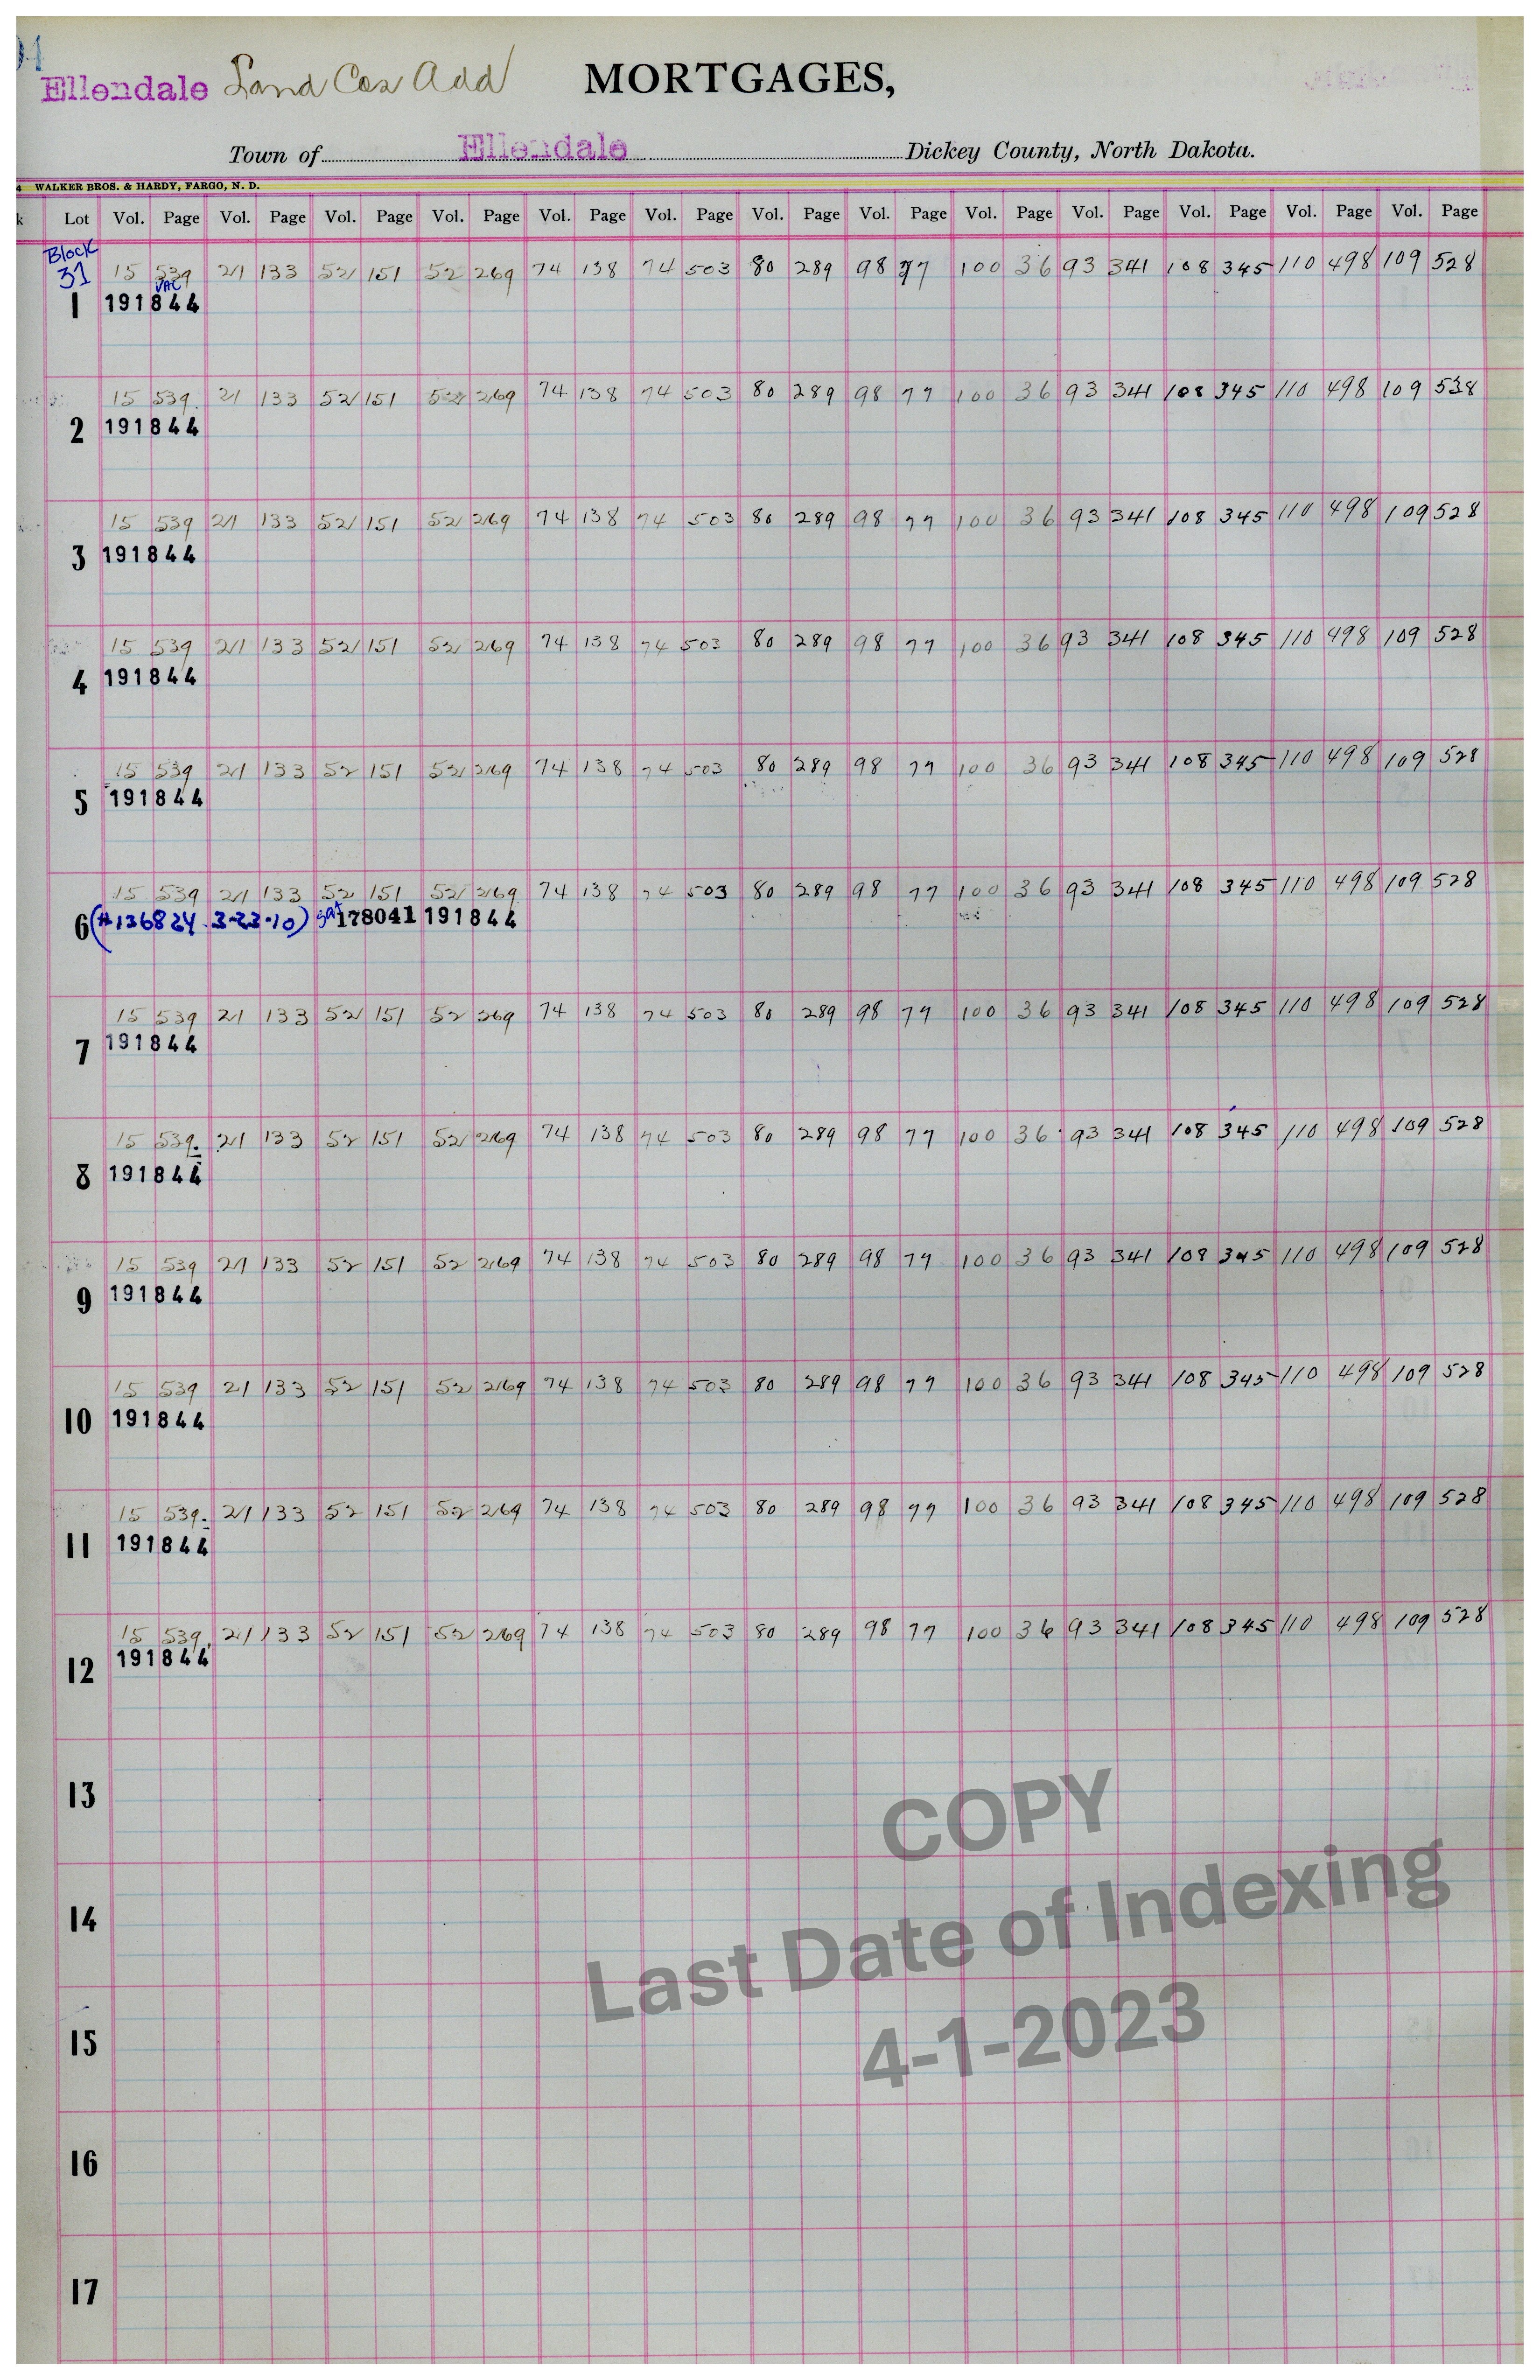 Ellendale Land Cos Add MORTGAGES,
Town of Ellendale Dickey County, North Dakota.
4 WALKER BROS. & HARDY, FARGO, N. D.
k Lot Vol. Page Vol. Page Vol. Page Vol. Page Vol. Page Vol. Page Vol. Page Vol. Page Vol. Page Vol. Page Vol. Page Vol. Page Vol. Page
Block
31 15 539 21 133 52 151 52 269 74 138 74 503 80 289 98 77 100 36 93 341 108 345 110 498 109 528
VAC
1 191844
15 539 21 133 52 151 52 269 74 138 74 503 80 289 98 77 100 36 93 341 108 345 110 498 109 538
2 191844
15 539 21 133 52 151 52 269 74 138 74 503 80 289 98 77 100 36 93 341 108 345 110 498 109 528
3 191844
15 539 21 133 52 151 52 269 74 138 74 503 80 289 98 77 100 36 93 341 108 345 110 498 109 528
4 191844
15 539 21 133 52 151 52 269 74 138 74 503 80 289 98 77 100 36 93 341 108 345 110 498 109 528
5 191844
15 539 21 133 52 151 52 269 74 138 74 503 80 289 98 77 100 36 93 341 108 345 110 498 109 528
6 (#136824 3-23-10) sat 178041 191844
15 539 21 133 52 151 52 269 74 138 74 503 80 289 98 77 100 36 93 341 108 345 110 498 109 528
7 191844
15 539. 21 133 52 151 52 269 74 138 74 503 80 289 98 77 100 36 93 341 108 345 110 498 109 528
8 191844
15 539 21 133 52 151 52 269 74 138 74 503 80 289 98 77 100 36 93 341 108 345 110 498 109 528
9 191844
15 539 21 133 52 151 52 269 74 138 74 503 80 289 98 77 100 36 93 341 108 345 110 498 109 528
10 191844
15 539. 21 133 52 151 52 269 74 138 74 503 80 289 98 77 100 36 93 341 108 345 110 498 109 528
11 191844
15 539. 21 133 52 151 52 269 74 138 74 503 80 289 98 77 100 36 93 341 108 345 110 498 109 528
12 191844
13
COPY
14
Last Date of Indexing
15
4-1-2023
16
17